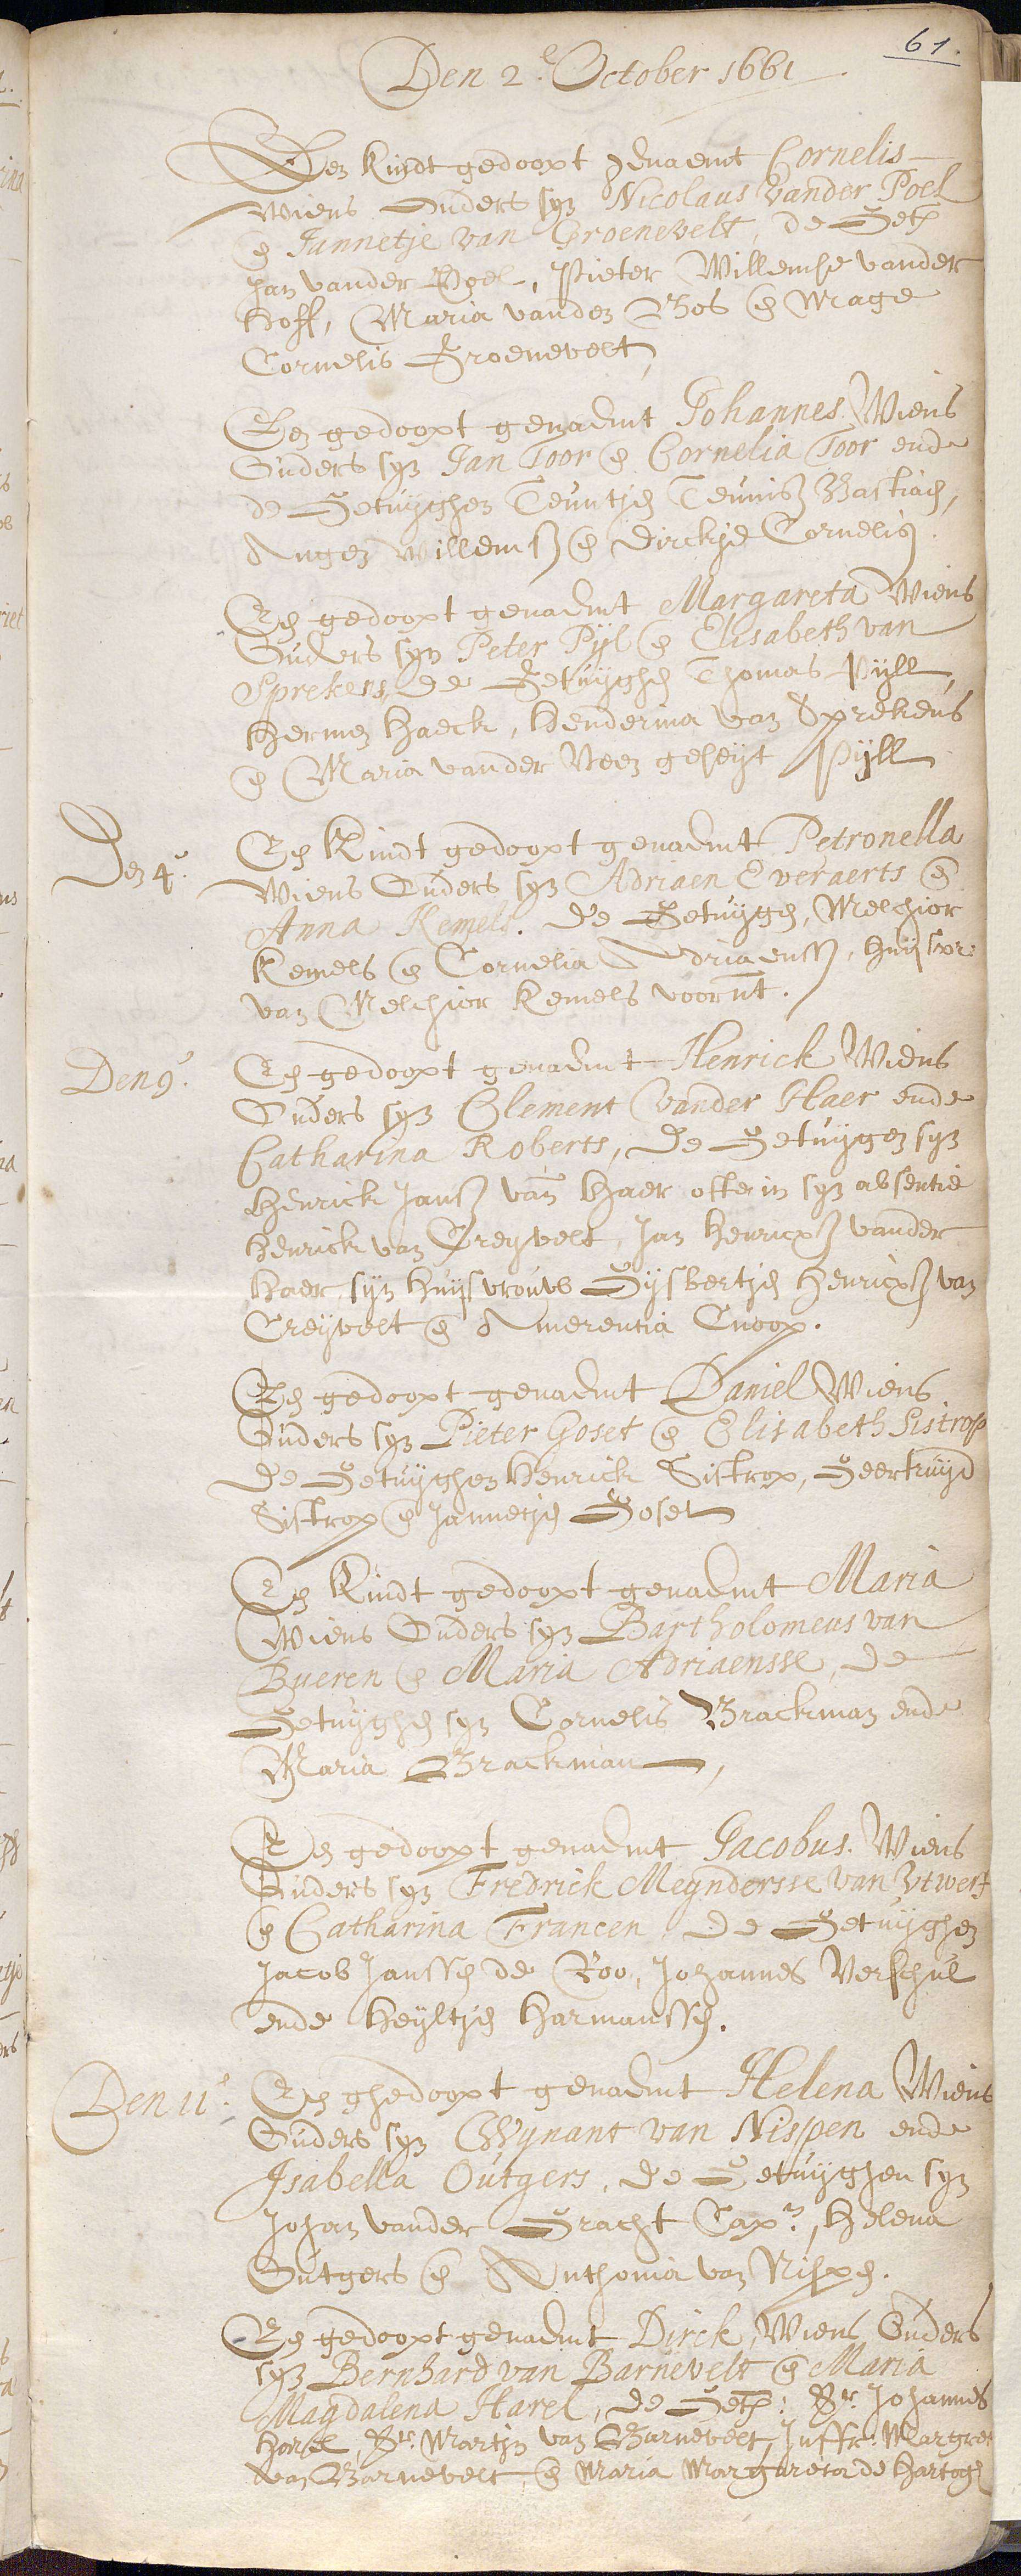 61.
Den 2.e October 1661
Een Kindt gedoopt genaemt Cornelis
Wiens Ouders syn Nicolaus Vander Poel
en Jannetje van Groenevelt, de Get:
Jan vander Poel, Pieter Willemse vander
Hoff, Maria vanden Bos en Mage
Cornelis Groenevelt,
Een gedoopt genaemt Johannes. Wiens
Ouders syn Jan Toor en Cornelia Toor ende
de Getuyghen Teuntjen Teuniss Bastiaen,
Angen Willemss en Dirckje Cornelis.
Een gedoopt genaemt Margareta Wiens
Ouders syn Peter Pyl en Elisabeth van
Sprekens, de Getuyghen Thomas Pyll,
Hermen Haeck, Henderina van Sprekens
en Maria vander Veen geseyt Pyll
Den 4.e
Een Kindt gedoopt genaemt Petronella
Wiens Ouders syn Adriaen Everaerts en
Anna Kemels. de Getuygen, Melchior
Kemels en Cornelia Adriaenss, huysvr:
van Melchior Kemels voornt.
Den 9.e
Een gedoopt genaemt Henrick Wiens
Ouders syn Clement Vander Haer ende
Catharina Roberts, de Getuygen syn
Henrick Janss van Haer ofte in syn absentie
Henrick van Creyvelt, Jan Henricxss vander
Haer, syn huysvrouw Gysbertjen Henricxss van
Creyvelt en Amerentia Cnoop.
Een gedoopt genaemt Daniel Wiens
Ouders syn Pieter Goset en Elisabeth Sistrop
de Getuyghen Henrick Sistrop, Geertruyd
Sistrop en Jannetjen Goset
Een Kindt gedoopt genaemt Maria
Wiens Ouders syn Bartholomeus van
Bueren en Maria Adriaensse, de
Getuyghen syn Cornelis Brackman ende
Maria Brackman,
Een gedoopt genaemt Jacobus. Wiens
Ouders syn Fredrick Meyndersse van Utwerf
en Catharina Francen de Getuyghen
Jacob Janssen de Roo, Johannes Verschul
ende Heyltjen Harmanssen.
Den 11.e
Een ghedoopt genaemt Helena Wiens
Ouders syn Wynant van Nispen ende
Isabella Outgers, de Getuyghen syn
Johan vander Gracht Capn., Helena
Outgers en Anthonia van Nispen.
Een gedoopt genaemt Dirck, Wiens Ouders
syn Bernhard van Barnevelt en Maria
Magdalena Harel, de Get: Sr. Johannes
Harel, Sr. Martyn van Barnevelt, Juffr. Margret
van Barnevelt, en Maria Margareta de Hartogh